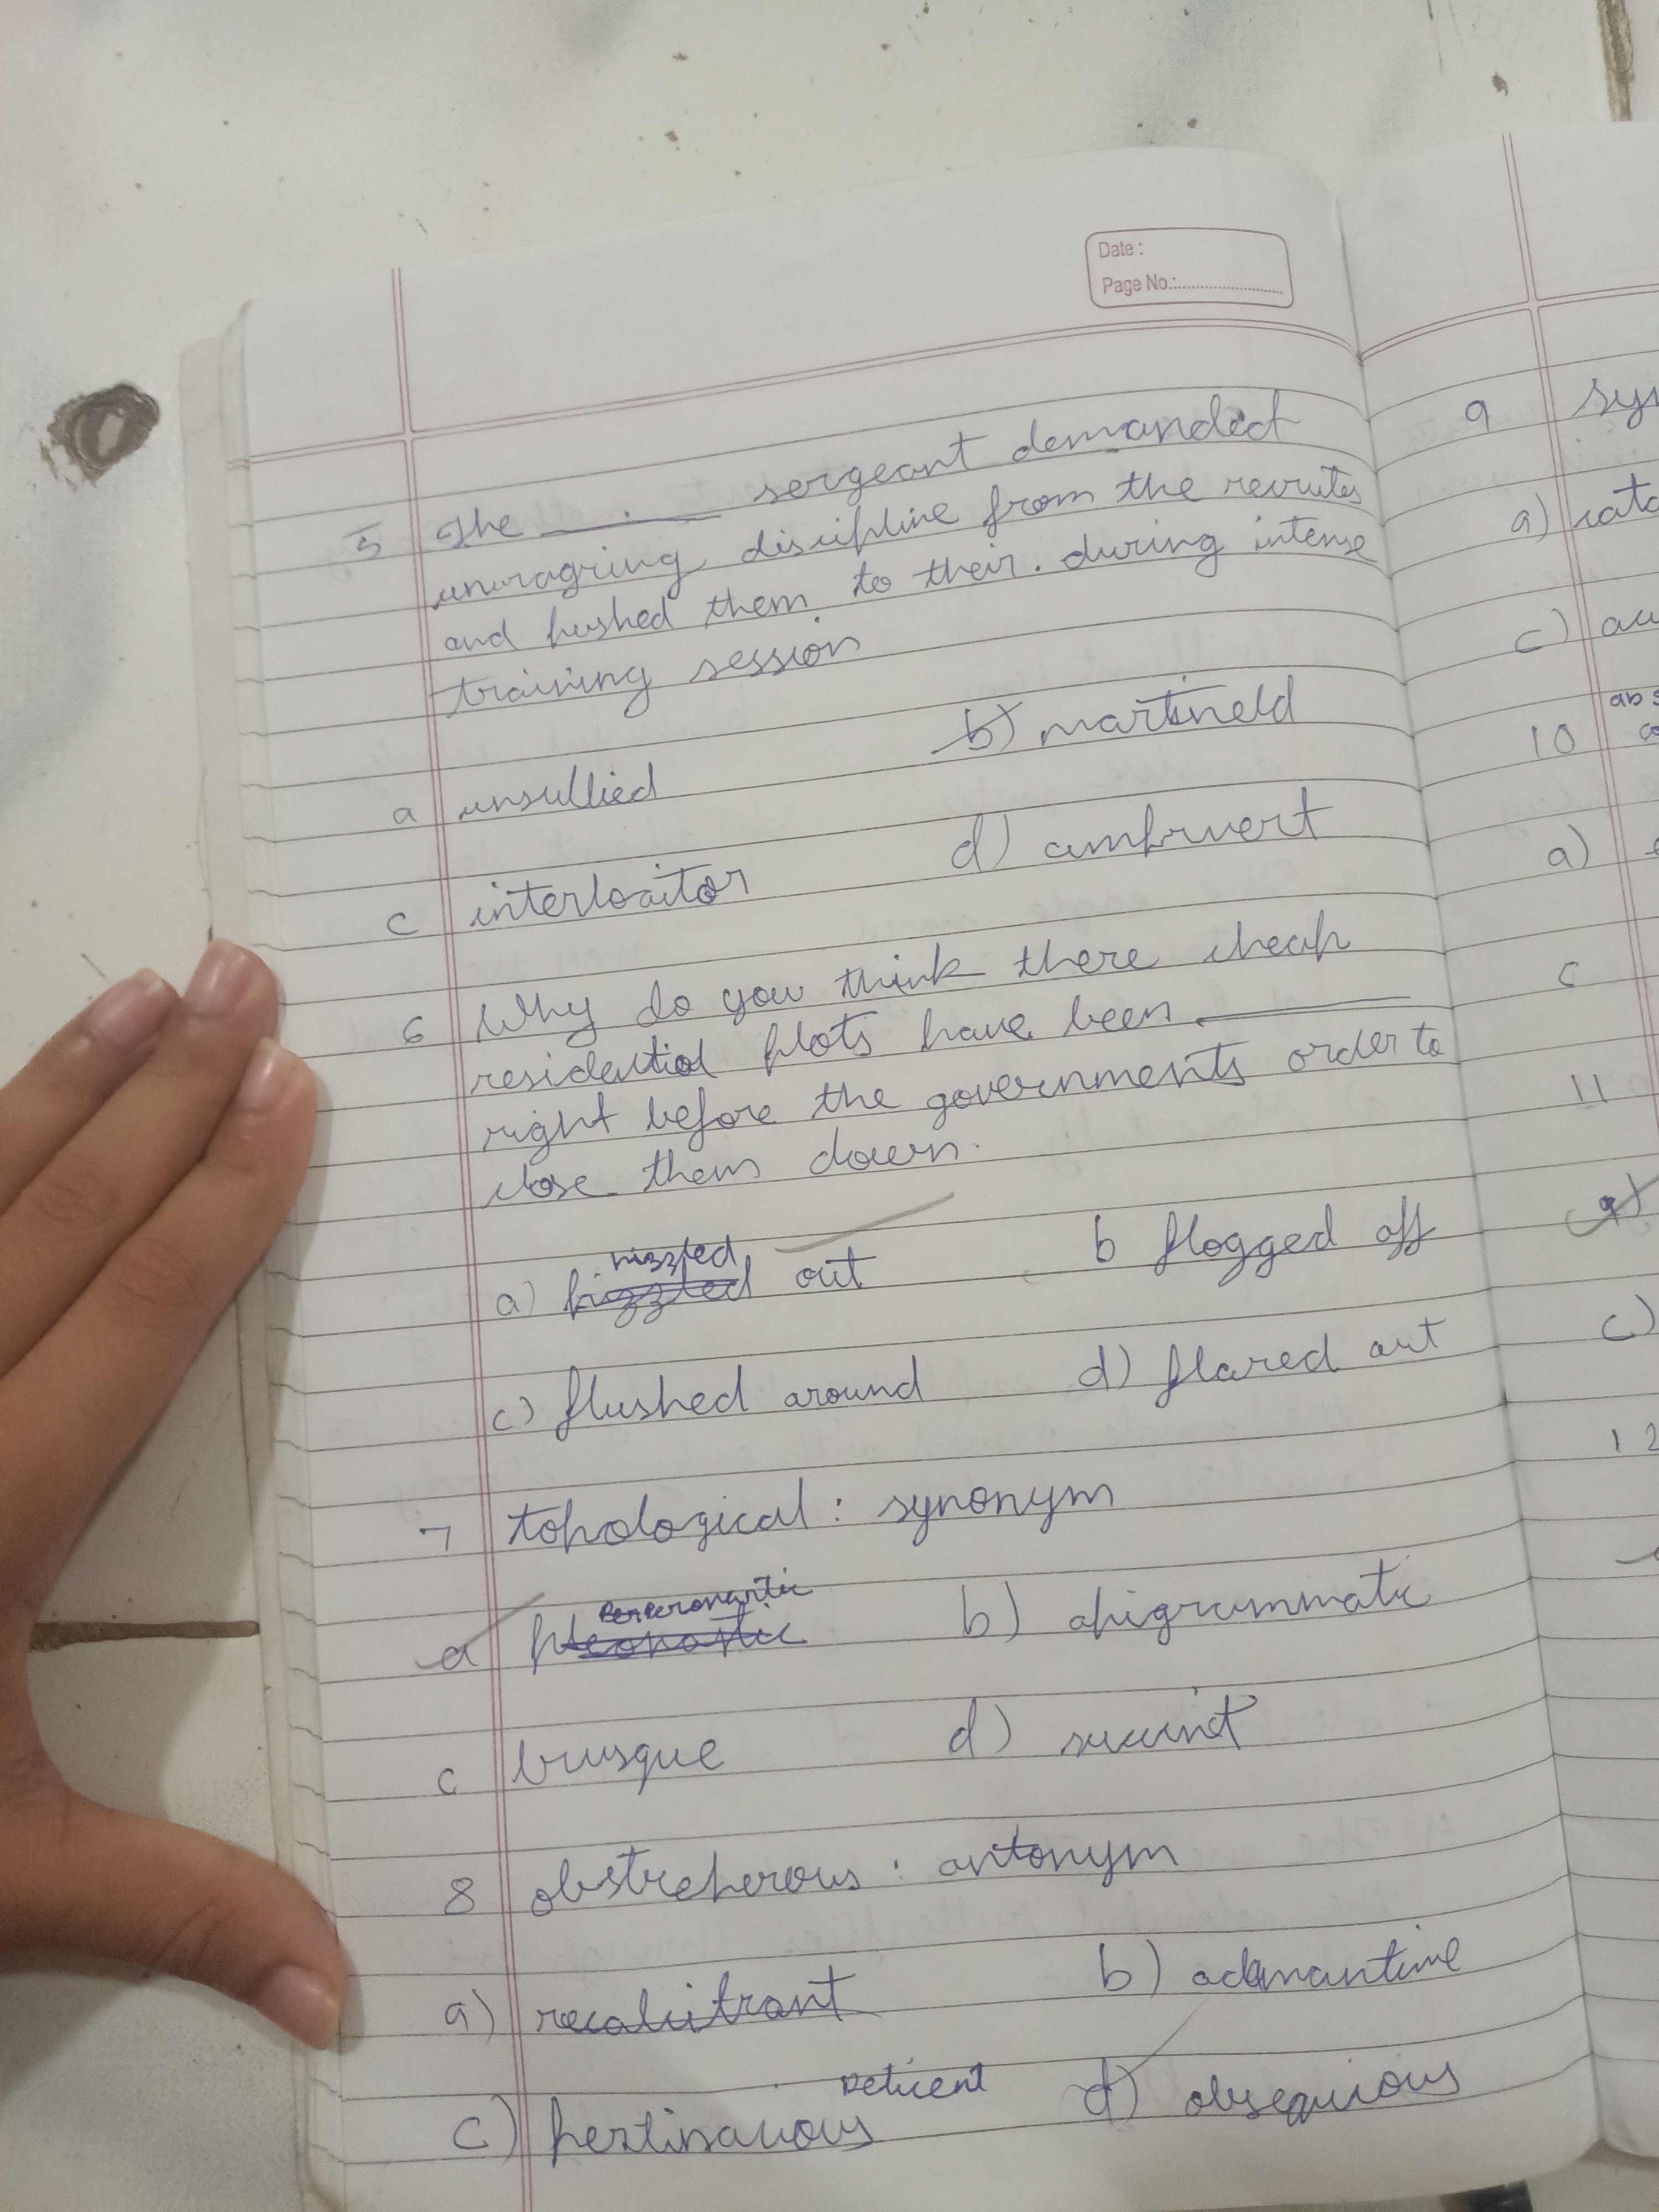 Date :
Page No.:
5 The ______ sergeant demanded
unwagring discipline from the recruites
and pushed them to their . during intense
training session
a unsullied b) martineld
c interlocitor d)
6 Why do you think there cheap
residential plots have been ______
right before the governments order to
close them down.
a) out b flogged off
c) flushed around d) flared out
7 topological : synonym
a pleonastic b) apigrammatic
c brusque d) succinct
8 obstreperous : antonym
a) recalcitrant b) adamantine
c) pertinacious reticent d) obsequious
9
a)
c)
10
a)
c
11
a)
c)
12